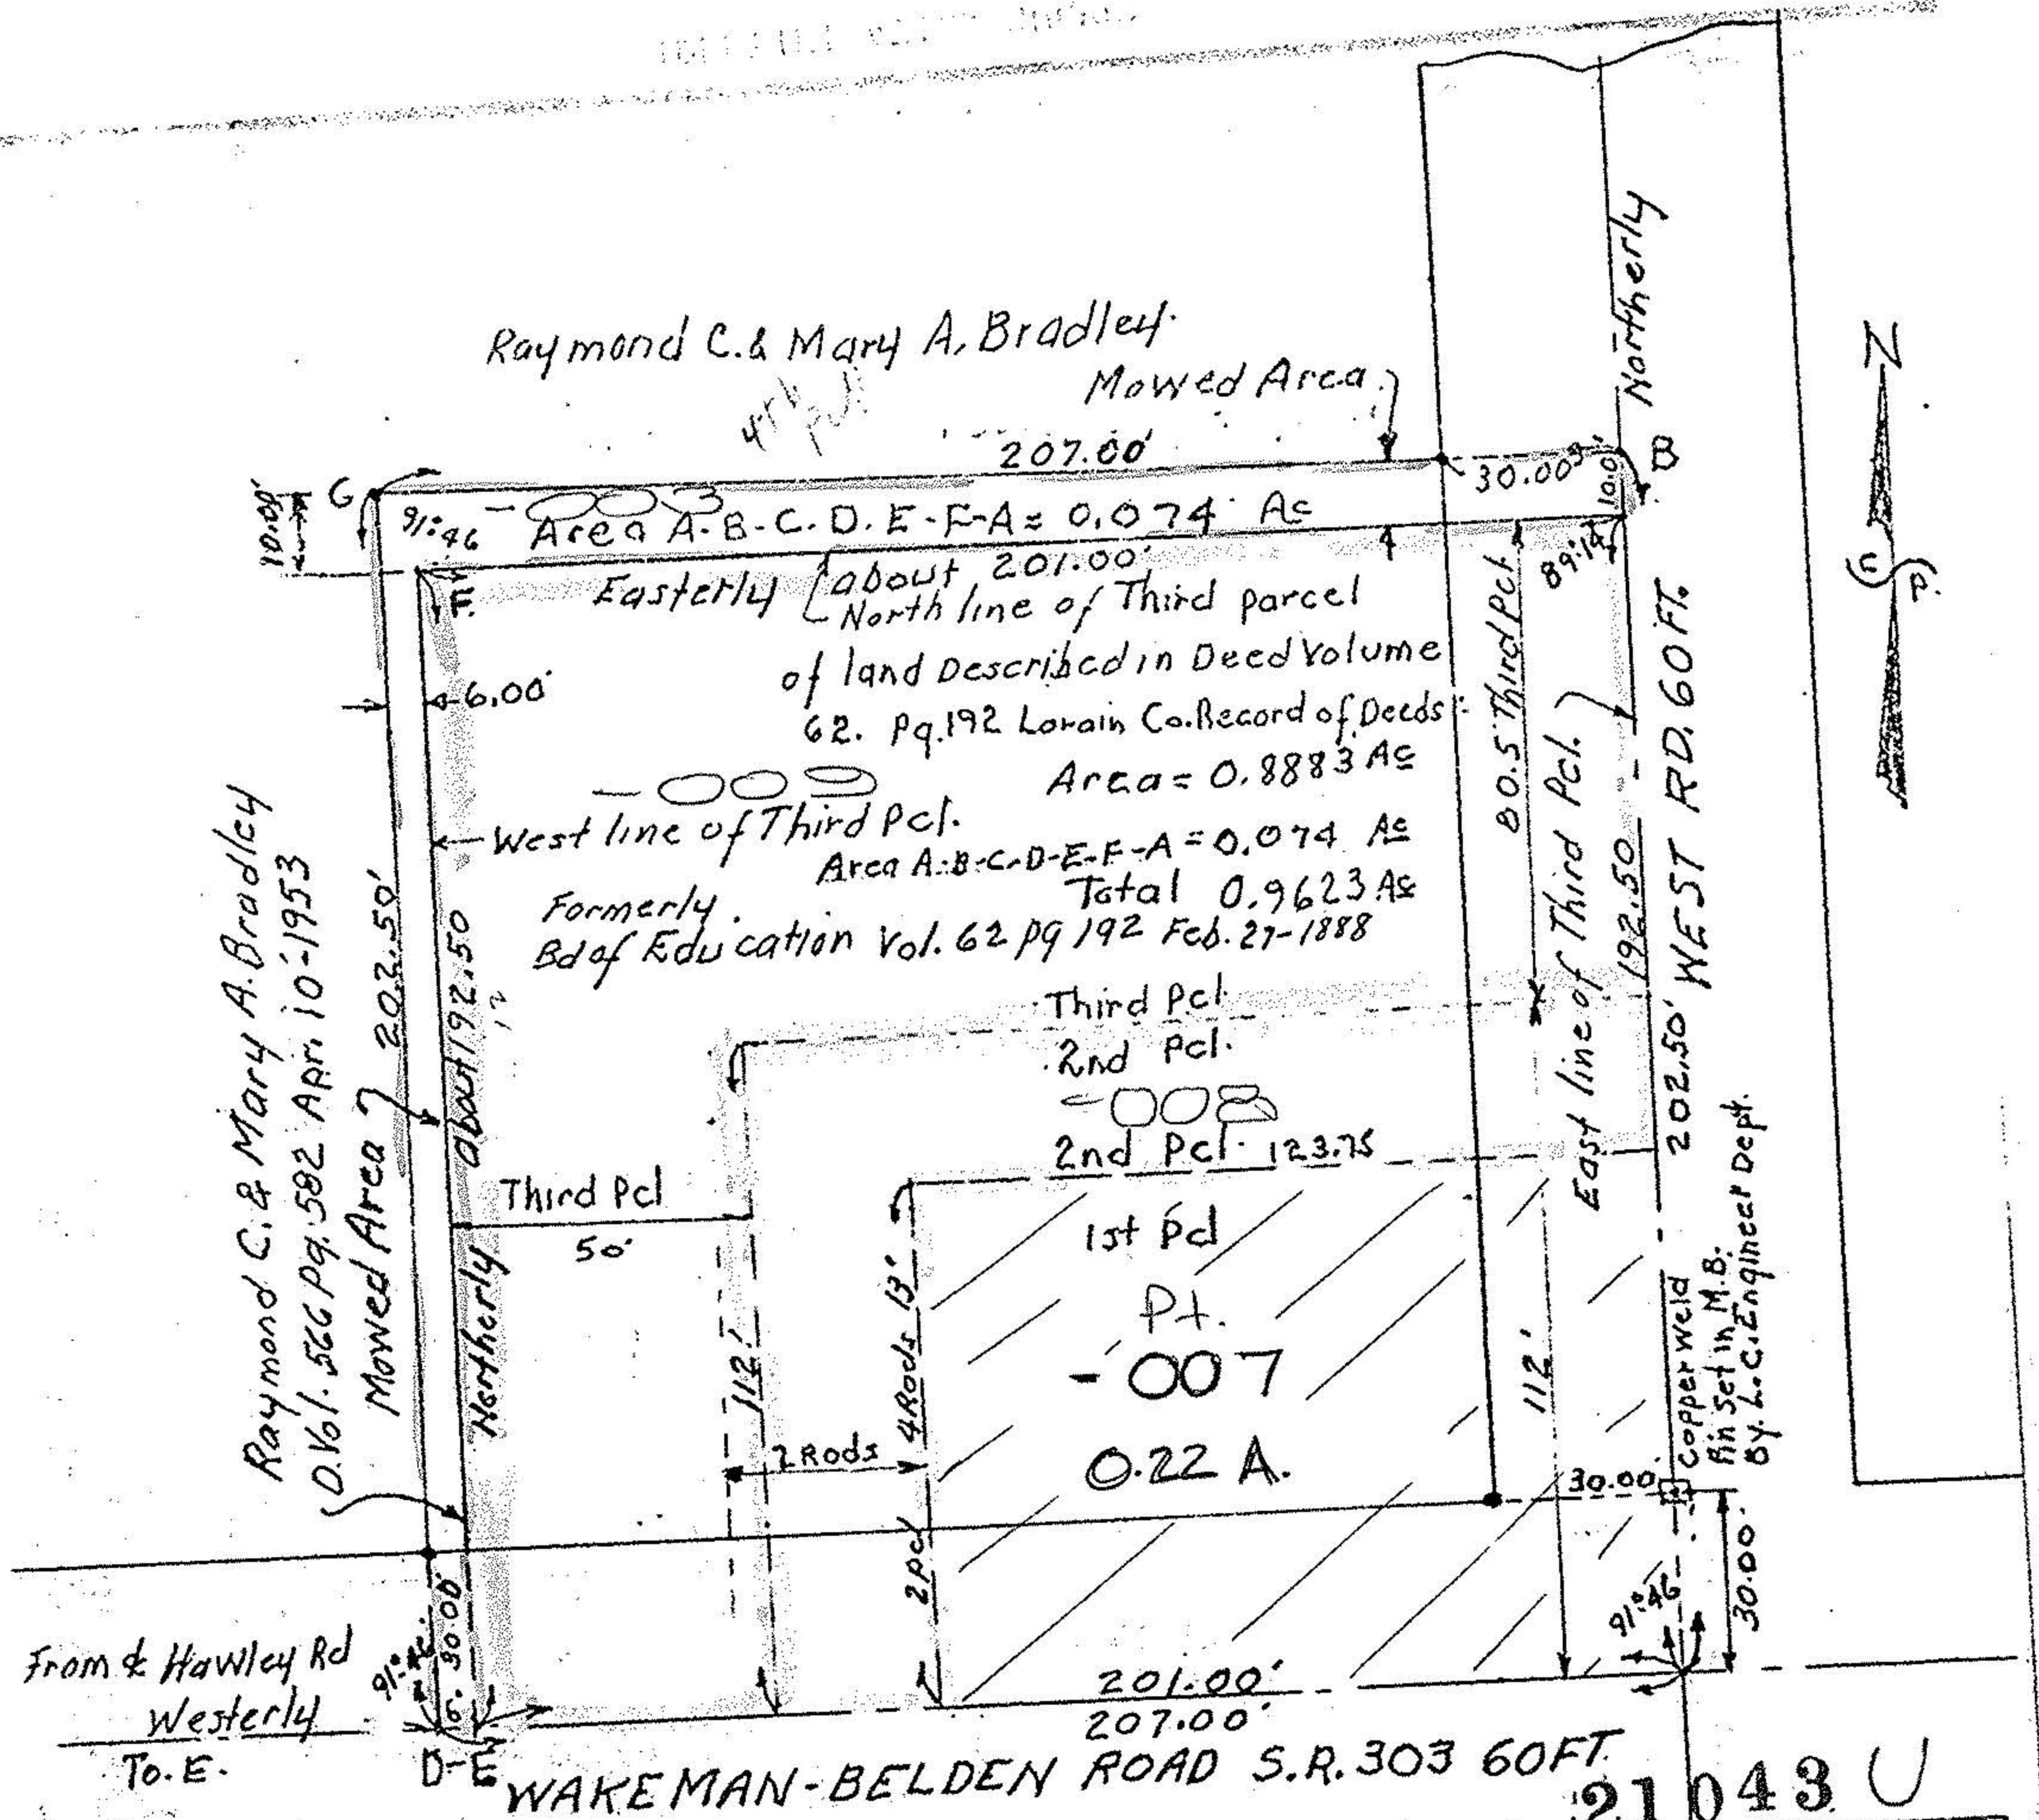 Raymond C. & Mary A. Bradley.
Mowed Area
Northerly
N
207.00'
30.00
10.0
B
C
10.00'
91°46
-003
Area A-B-C-D-E-F-A = 0.074 Ac
F
89°14'
Easterly
about 201.00'
North line of Third parcel
of land Described in Deed Volume
62. Pg. 192 Lorain Co. Record of Deeds
Area = 0.8883 Ac
6.00'
-009
West line of Third Pcl.
Area A-B-C-D-E-F-A = 0.074 Ac
Total 0.9623 Ac
Formerly
Bd of Education Vol. 62 pg 192 Feb. 27-1888
80.5' Third Pcl.
East line of Third Pcl.
192.50
202.50'
WEST RD. 60 FT.
Raymond C. & Mary A. Bradley
D. Vol. 566 Pg. 582 Apr. 10-1953
Mowed Area
202.50'
Northerly about 192.50
Third Pcl.
2nd Pcl.
-008
2nd Pcl. 123.75
Third Pcl
50'
1st Pcl
Pt.
-007
0.22 A.
112'
2 Rods
2 pcl 4 Rods 13'
112'
30.00'
Copperweld
Pin Set in M.B.
By. L.C. Engineer Dept.
30.00'
91°46
From ℄ Hawley Rd
Westerly
To. E.
91°46'
30.00
6.
D-E
201.00'
207.00'
WAKEMAN-BELDEN ROAD S.R. 303 60 FT.
21043 U